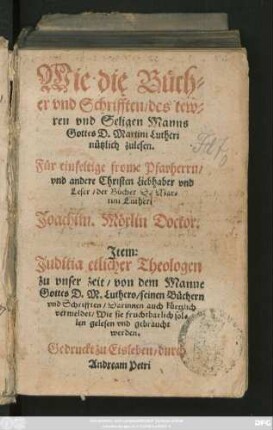 Wie die Büch-
er vnd Schrifften/des tew-
ren vnd Seligen Manns
Gottes D. Martin Lutheri
nützlich zulesen.
Für einfeltige frome Pfarherrn/
vnd andere Christen liebhaber vnd
Leser/der Bücher D. Mar-
tini Lutheri
Joachim. Mörlin Doctor.
Item:
Juditia etlicher Theologen
zu vnser zeit/von dem Manne
Gottes D. M. Luthero/seinen Büchern
vnd Schrifften/Darinnen auch kürtzlich
vermeldet/Wie sie fruchtbarlich sol-
len gelesen vnd gebraucht
werden.
Gedruckt zu Eisleben/durch
Andream Petri